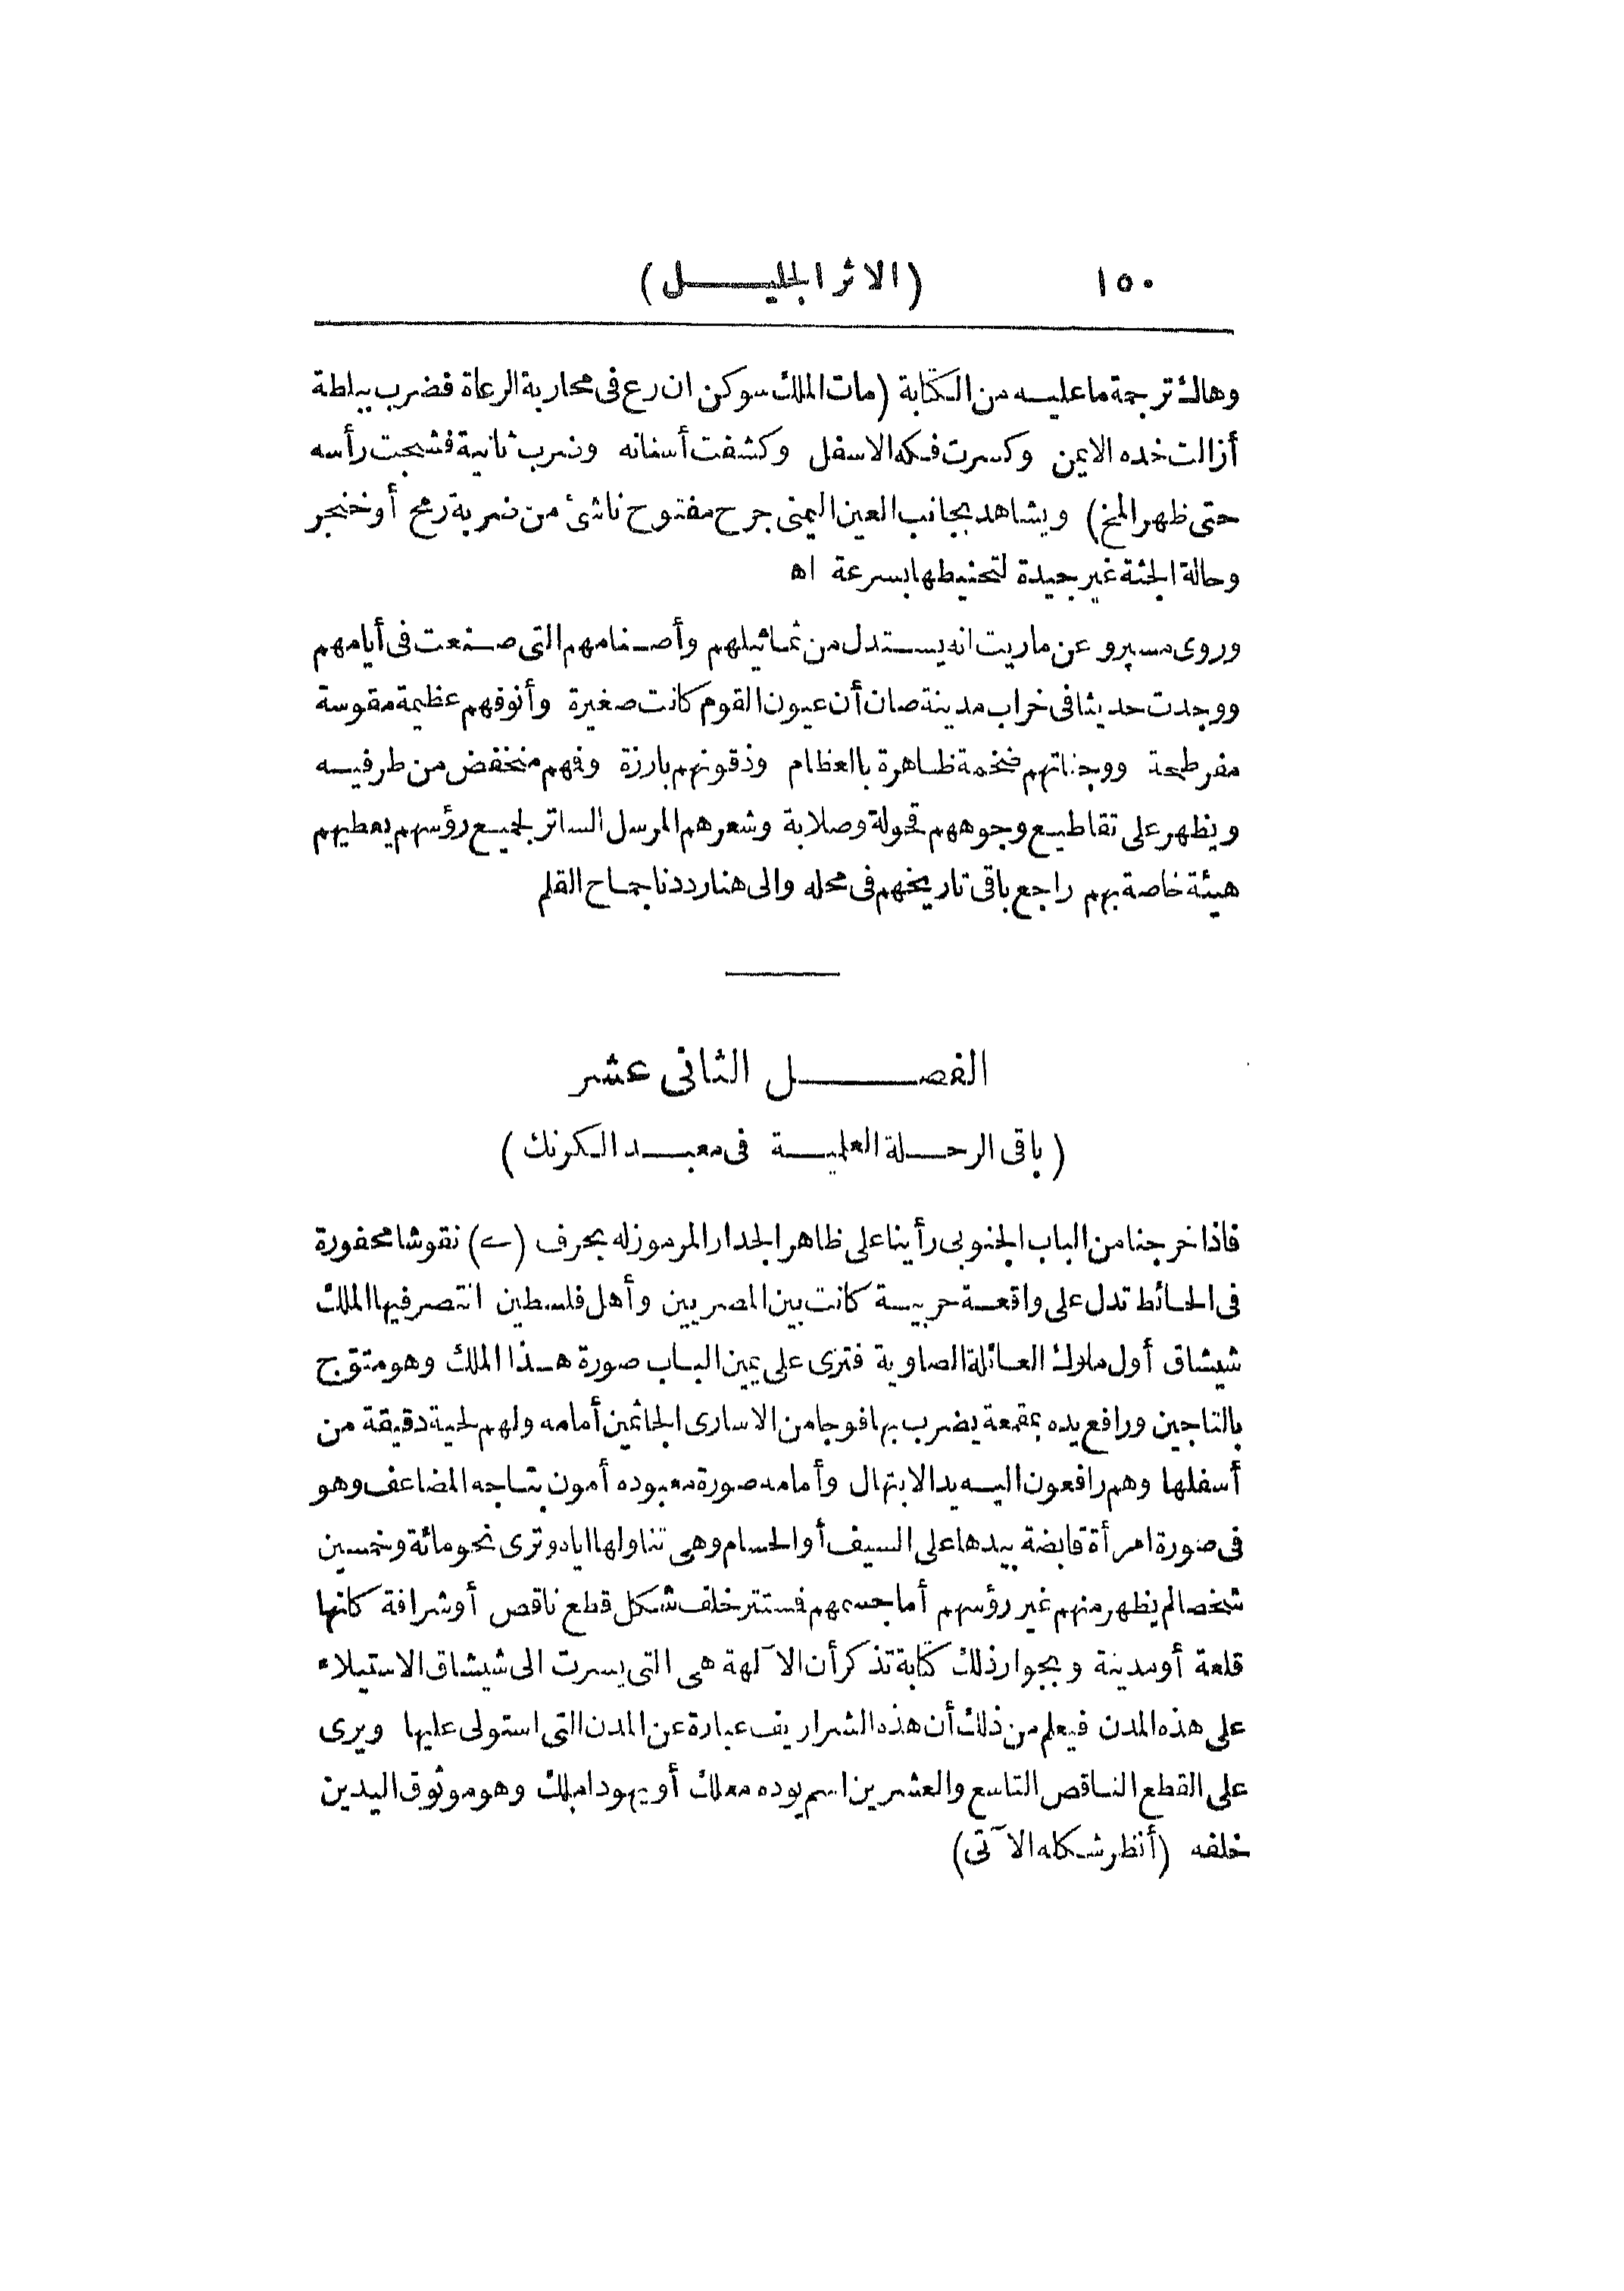 ١٥٠ (الاثر الجليل)
وهاك ترجمة ما عليه من الكتابة (مات الملك سوكن ان رع فى محاربة الرعاة فضرب ببلطة
أزالت خده الايمن وكسرت فكه الاسفل وكشفت أسنانه وضرب ثانية فشجت رأسه
حتى ظهر المخ) ويشاهد بجانب العين اليمنى جرح مفتوح ناشئ من ضربة رمح أو خنجر
وحالة الجثة غير جيدة لتحنيطها بسرعة اه
وروى مسپرو عن ماريت انه يستدل من تماثيلهم وأصنامهم التى صنعت فى أيامهم
ووجدت حديثا فى خراب مدينة صان أن عيون القوم كانت صغيرة وأنوفهم عظيمة مقوسة
مفرطحة ووجناتهم ضخمة ظاهرة بالعظام وذقونهم بارزة وفهم منخفض من طرفيه
ويظهر على تقاطيع وجوههم قحولة وصلابة وشعرهم المرسل الساتر لجميع رؤسهم يعطيهم
هيئة خاصة بهم راجع باقى تاريخهم فى محله والى هنا رددنا جماح القلم
الفصل الثانى عشر
(باقى الرحلة العلمية فى معبد الكرنك)
فاذا خرجنا من الباب الجنوبى رأينا على ظاهر الجدار المرموز له بحرف (ے) نقوشا محفورة
فى الحائط تدل على واقعة حربية كانت بين المصريين وأهل فلسطين انتصر فيها الملك
شيشاق أول ملوك العائلة الصاوية فترى على يمين الباب صورة هذا الملك وهو متوّج
بالتاجين ورافع يده بمقمعة يضرب بها فوجا من الاسارى الجاثمين أمامه ولهم لحية دقيقة من
أسفلها وهم رافعون اليه يد الابتهال وأمامه صورة معبوده أمون بتاجه المضاعف وهو
فى صورة امرأة قابضة بيدها على السيف أو الحسام وهى تناولها اياه وترى نحو مائة وخمسين
شخصا لم يظهر منهم غير رؤسهم أما جسمهم فستتر خلف شكل قطع ناقص أو شرافة كانها
قلعة أو مدينة وبجوار ذلك كتابة تذكر أن الآلهة هى التى يسرت الى شيشاق الاستيلاء
على هذه المدن فيعلم من ذلك أن هذه الشراريف عبارة عن المدن التى استولى عليها ويرى
على القطع الناقص التاسع والعشرين اسم يوده معلك أو يهودا ملك وهو موثوق اليدين
خلفه (أنظر شكله الآتى)